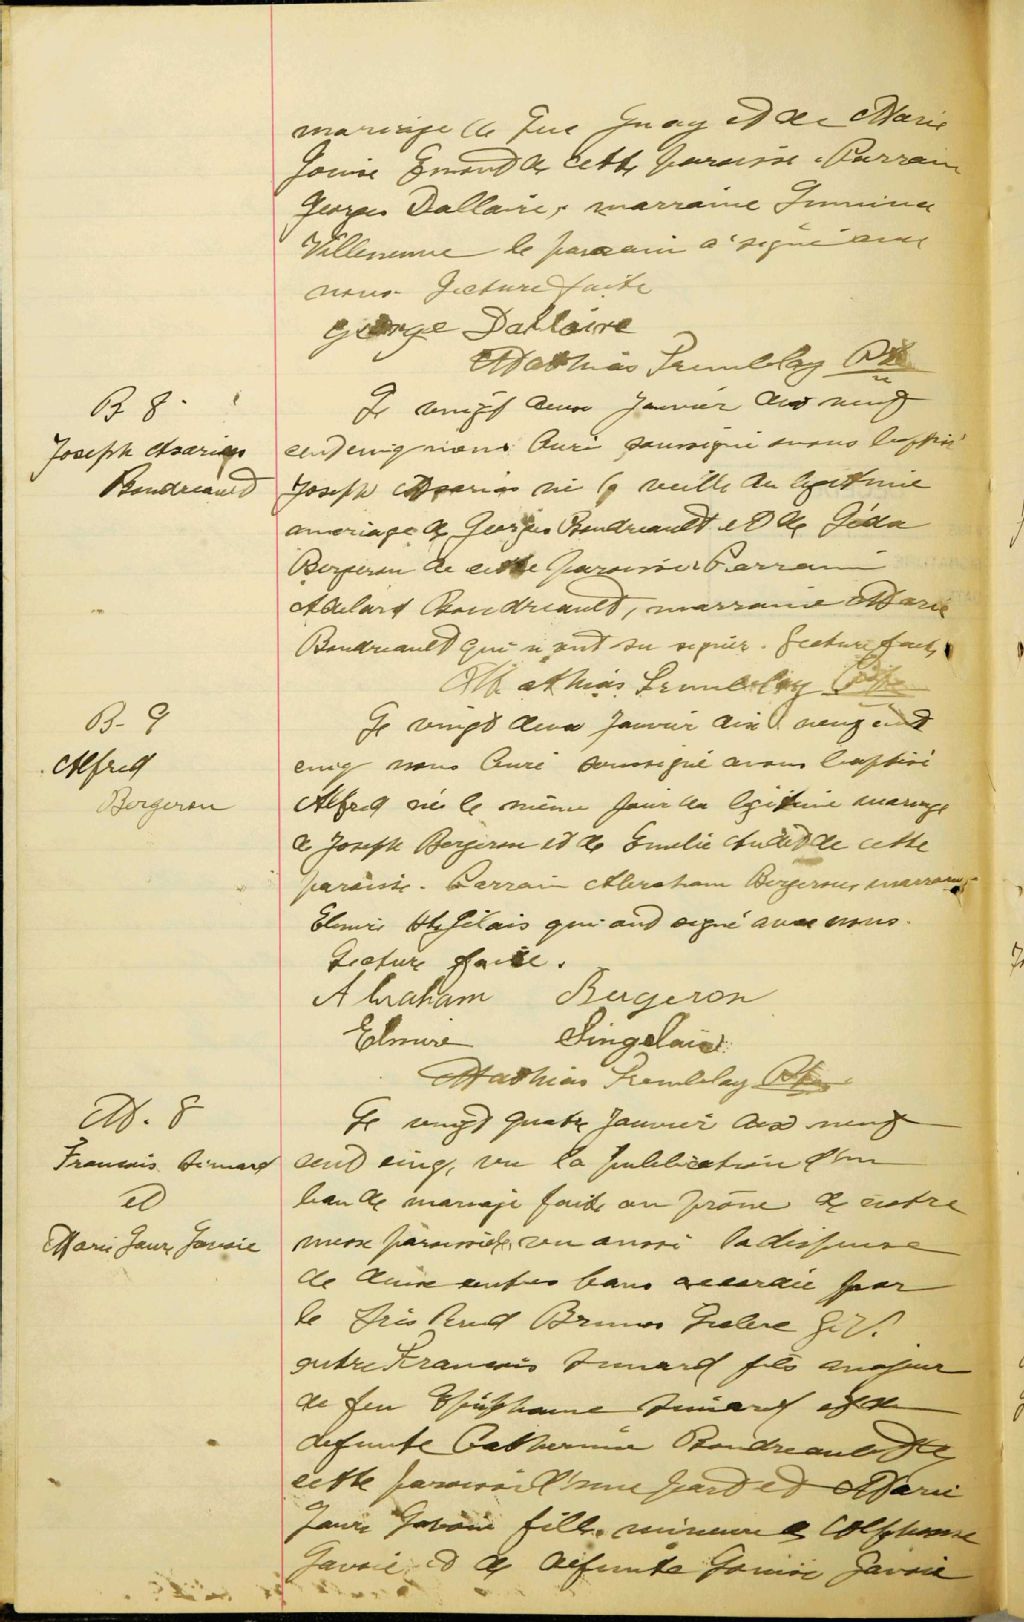 mariage de Luc Guay et de Marie
Louise Emond de cette paroisse. Parrain
Georges Dallaire, marraine
Villeneuve le parrain a signé avec
nous. Lecture faite
George Dallaire
Mathias Tremblay Ptre
B 8.
Joseph Azarias
Boudreault
Le vingt deux Janvier dix neuf
cent cinq nous Curé soussigné avons baptisé
Joseph Azarias né la veille du légitime
mariage de Georges Boudreault et de Léda
Bergeron de cette paroisse. Parrain
Adelard Boudreault, marraine Marie
Boudreault qui n'ont su signer. Lecture faite
Mathias Tremblay Ptre
B. 9
Alfred
Bergeron
Le vingt deux Janvier dix neuf cent
cinq nous Curé soussigné avons baptisé
Alfred né le même jour du légitime mariage
de Joseph Bergeron et de Emelie Audet de cette
paroisse. Parrain Abraham Bergeron, marraine
Elmire St Gelais qui ont signé avec nous.
Lecture faite.
Abraham Bergeron
Elmire Singelais
Mathias Tremblay Ptre
M. 8
Francois Simard
et
Marie Laure Lavoie
Le vingt quatre Janvier dix neuf
cent cinq, vu la publication d'un
ban de mariage faite au prône de notre
messe paroissiale, vu aussi la dispense
de deux autres bans accordée par
le très Revd Bruno Leclerc G.V.
entre Francois Simard fils majeur
de feu Epiphane Simard et de
defunte Catherine Boudreault de
cette paroisse d'une part et Marie
Laure Lavoie fille mineure de Alphonse
Lavoie et de defunte Louise Lavoie